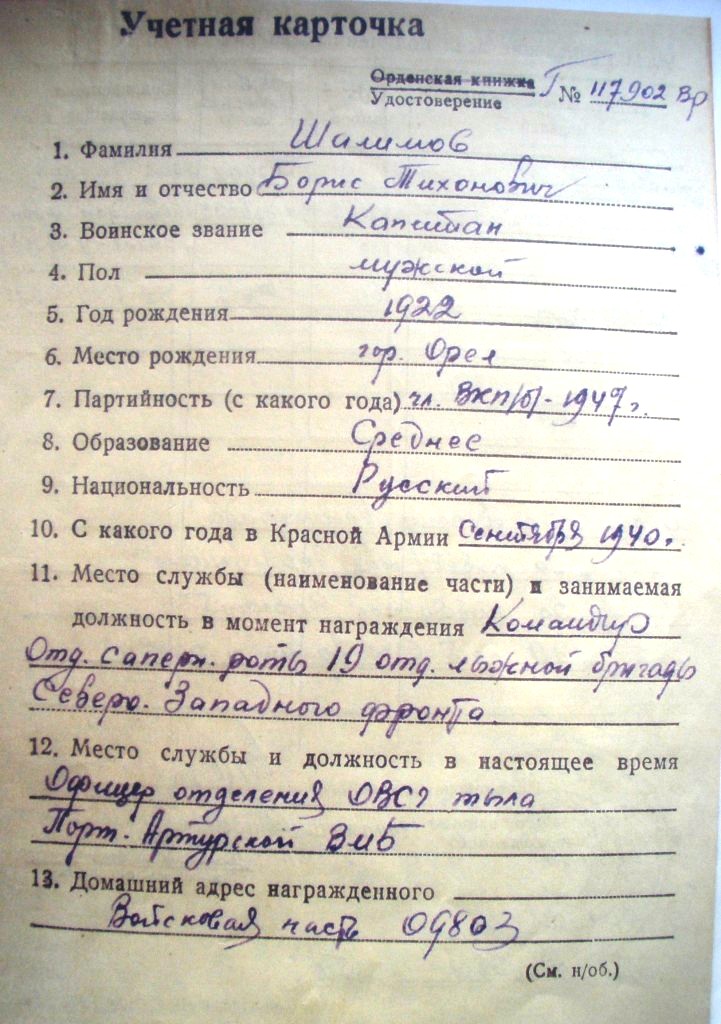 Учетная карточка
Орденская книжка
Удостоверение Г № 117902 вр
1. Фамилия Шалимов
2. Имя и отчество Борис Тихонович
3. Воинское звание Капитан
4. Пол мужской
5. Год рождения 1922
6. Место рождения гор. Орел
7. Партийность (с какого года) чл. ВКП/б/-1947г.
8. Образование Среднее
9. Национальность Русский
10. С какого года в Красной Армии Сентября 1940г.
11. Место службы (наименование части) и занимаемая
должность в момент награждения Командир
Отд. саперн. роты 19 отд. лыжной бригады
Северо. Западного фронта.
12. Место службы и должность в настоящее время
Офицер отделения тыла
Порт. Артурской ВМБ
13. Домашний адрес награжденного
Войсковая часть 09803
(См. н/об.)